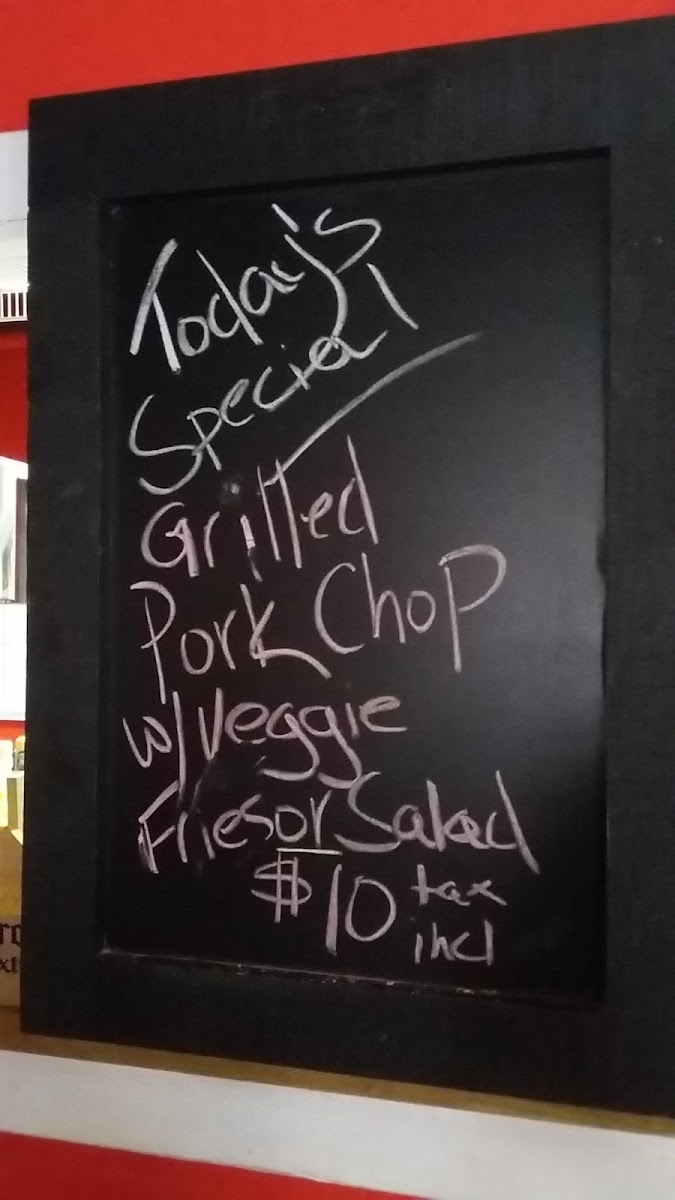 Today's
Special
Grilled
Pork Chop
w/ Veggie
Fries or Salad
$10 tax
incl